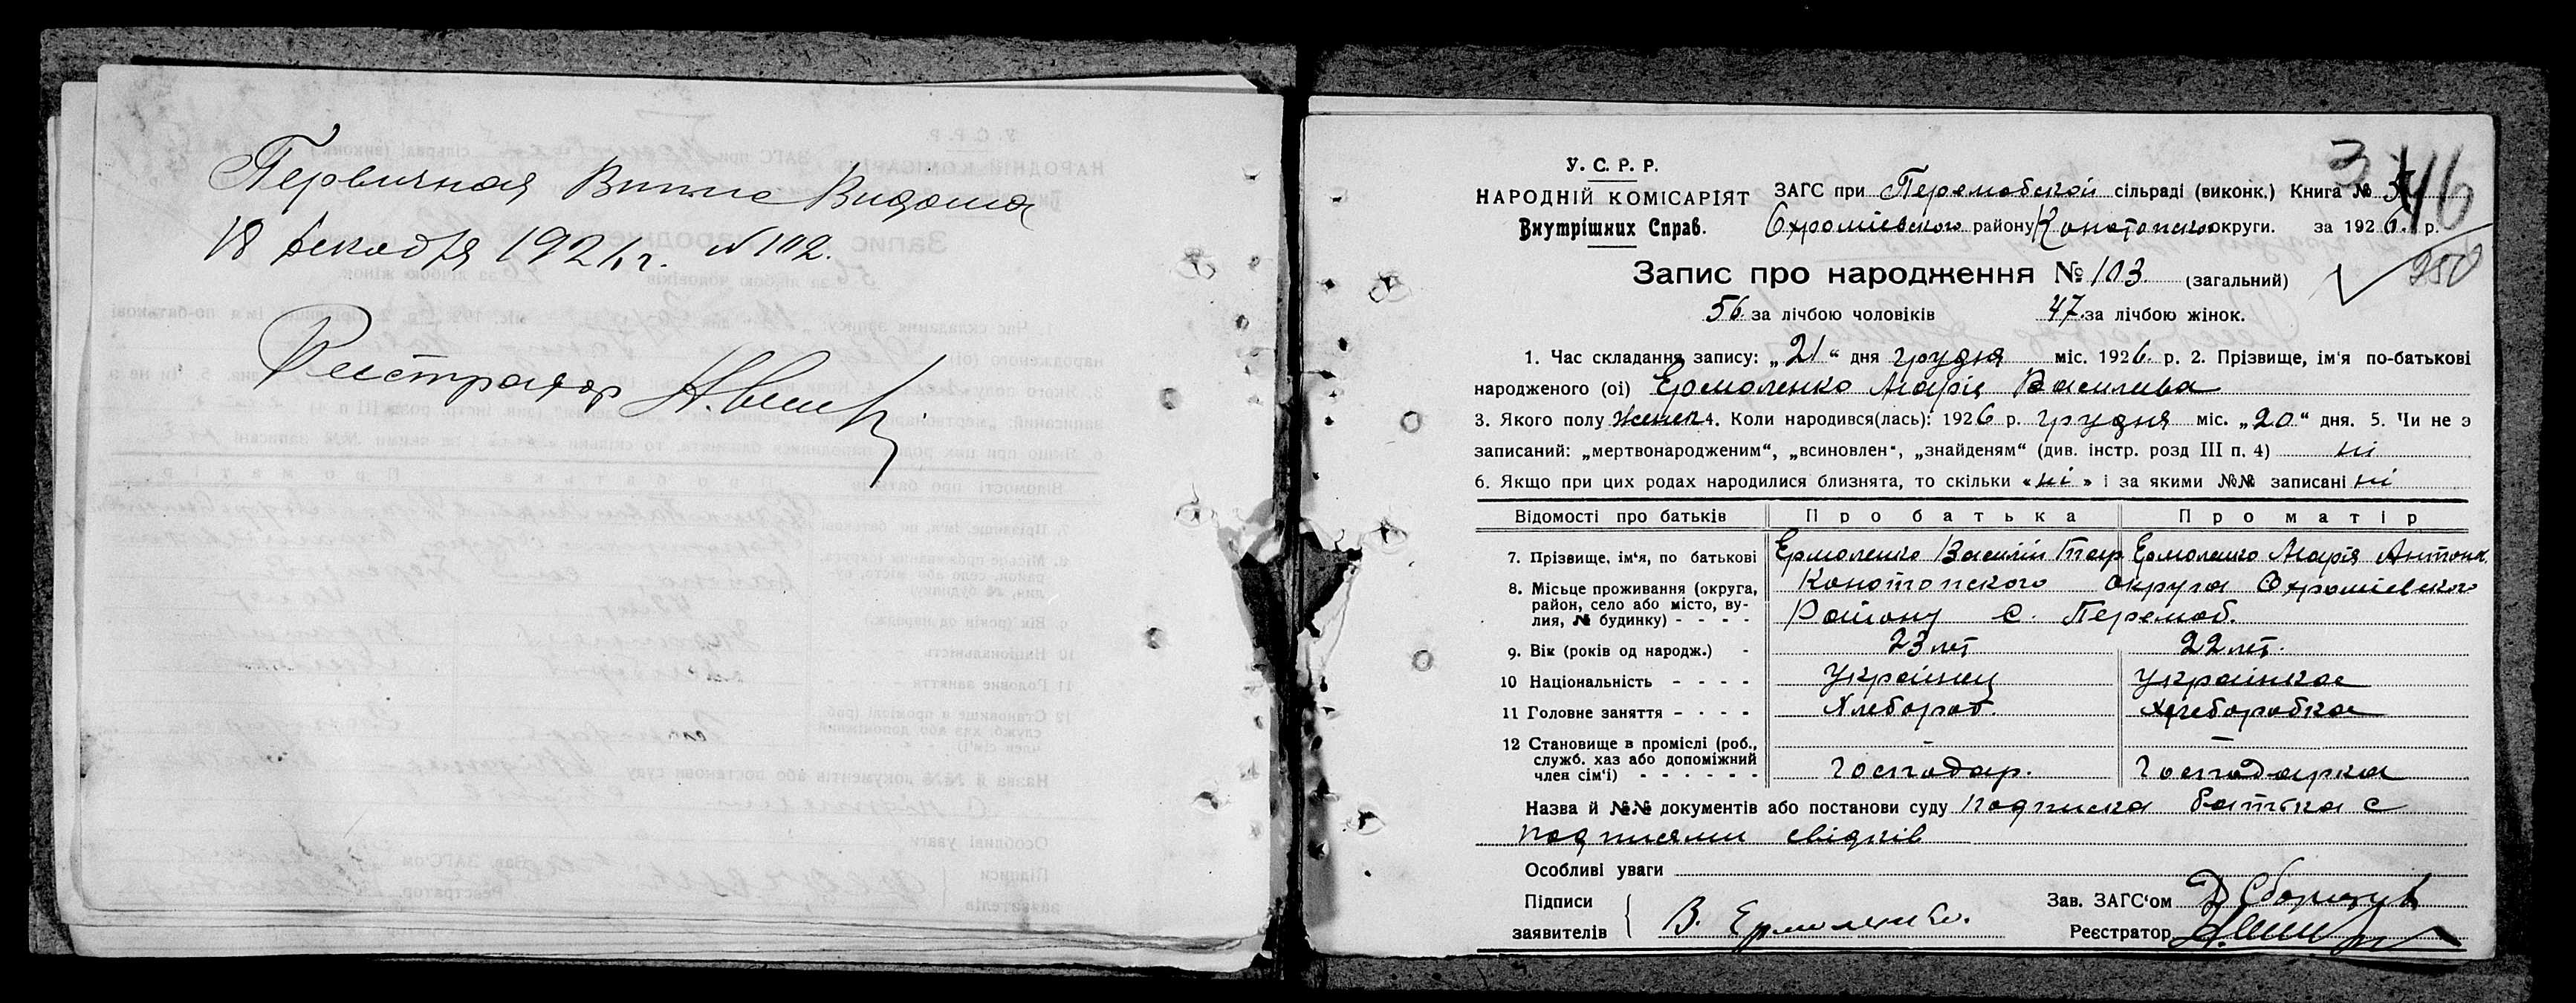 Первичная Випис Видана
18 декабря 1926 г. N 102.
Реистратор
346
У. С. Р. Р.
НАРОДНІЙ КОМІСАРІЯТ
Внутрішних Справ.
ЗАГС при Перемобской сільраді (виконк.) Книга №
Охромієвского району Конотопской округи. за 1926 р.
250
Запис про народження № 103. (загальний)
56 за лічбою чоловіків 47 за лічбою жінок.
1. Час складання запису: „21“ дня грудня міс. 1926 р. 2. Прізвище, ім'я по-батькові
народженого (ої) Ермоленко Марія Василева
3. Якого полу женск 4. Коли народився(лась): 1926 р. грудня міс. „20“ дня. 5. Чи не з
записаний: „мертвонародженим“, „всиновлен“, „знайденям“ (див. інстр. розд III п. 4) ні
6. Якщо при цих родах народилися близнята, то скільки «ні» і за якими №№ записані ні
Відомості про батьків Про батька Про матір
7. Прізвище, ім'я, по батькові Ермоленко Василій Ермоленко Марія Антон
8. Місьце проживання (округа, район, село або місто, вулия, № будинку) - - - - Конотопского округа Охромієвского
Району с. Перемоб.
9. Вік (років од народж.) - 23 лет 22 лет.
10 Національність - - - - Украінец Украінка
11 Головне заняття - - - - Хлебороб. Хлеборобка
12 Становище в промислі (роб., служб. хаз або допоміжний член сім'ї) - - - - - - Господар. Господарка
Назва й №№ документів або постанови суду подписка батька с
подписями свідків
Особливі уваги
Підписи
заявителів В. Ермоленко.
Зав. ЗАГС'ом
Реєстратор